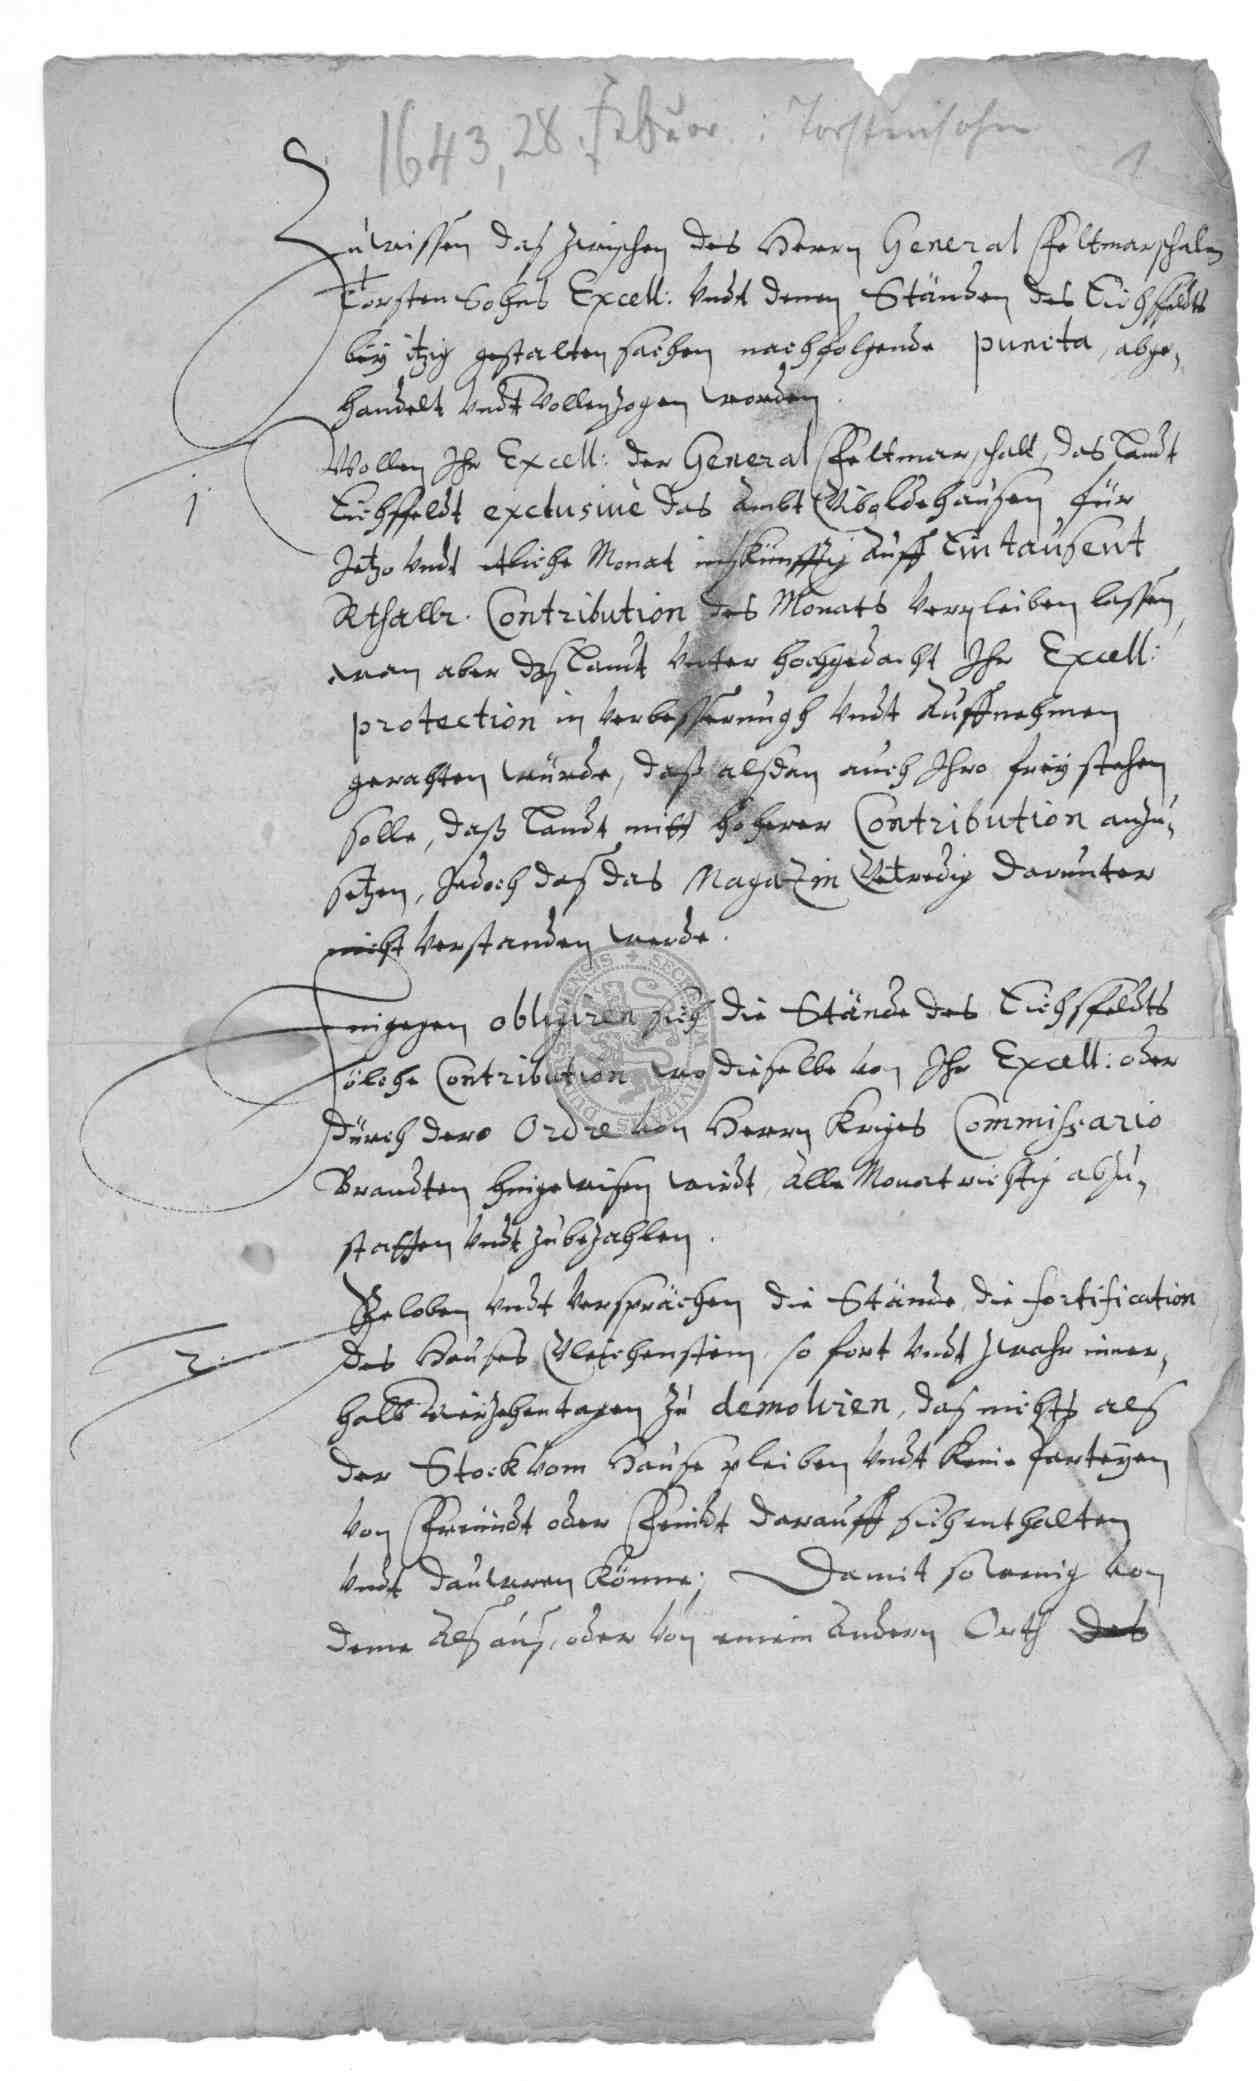 1643, 28. Februar : Torstensohn
1
Zu wissen daß zwischen des Herrn General Feltmarschaln
Torsten Sohns Excell: Undt denen Ständen des Eichsfeldts
bey itzig gestalten sachen nachfolgende puncta, abge„
handelt Undt Vollenzogen worden.
1. Wollen Ihr Excell: der General Feltmarschall, das Landt
Eichsfeldt exclusivè das Ambt Giboldehausen für
Jetzo Undt etliche Monat inskünfftig Auff Ein tausent
Rthallr. Contribution des Monats Verpleiben lassen,
wan aber daß Landt Unter hochgedacht Ihr Excell:
protection in Verbesserungh Undt Auffnehmen
gerahten würde, daß alßdan auch Ihro frey stehen
solle, daß Landt mitt höherer Contribution anzu„
setzen, Jedoch daß das Magazin Getredig darunter
nicht Verstanden werde.
Hingegen obligiren sich die Stände des Eichsfeldts
solche Contribution, wo dieselbe von Ihr Excell: oder
durch dero Ordre von Herrn Kriges Commissario
Brandten hingewisen wirdt, Alle Monat richtig abzu„
statten Undt zubezahlen.
2. Geloben Undt Versprächen die Stände, die fortification
des Hauses Gleichenstein, so fort Undt zwahr inner„
halb Vierzehen tagen zu demoliren, daß nichts als
der Stock vom Hause pleiben Undt Keine parteyen
von Freündt oder Feindt darauff sich enthalten
Undt dauweren Könne; Damit so wenig von
deme Als auß, oder von einem Andern Orth das